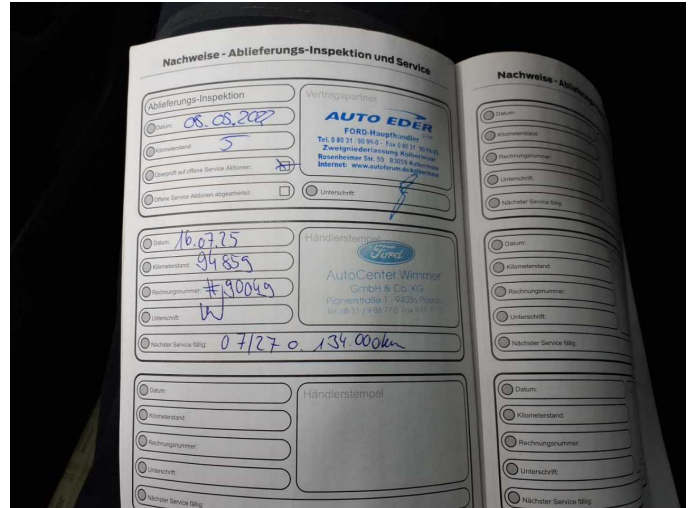 Nachweise - Ablieferungs-Inspektion und Service
Ablieferungs-Inspektion
Datum: 08.08.2022
Kilometerstand: 5
Überprüft auf offene Service Aktionen:
Offene Service Aktionen abgearbeitet:
Vertragspartner
AUTO EDER
FORD-Haupthändler
Zweigniederlassung Kolbermoor
Rosenheimer Str. 59 83059 Kolbermoor
Internet: www.autoforum.de/kolbermoor
Unterschrift:
Datum: 16.07.25
Kilometerstand: 94859
Rechnungsnummer: #90049
Unterschrift:
Nächster Service fällig: 07/27 o. 134.000km
Händlerstempel
Ford
AutoCenter Wimmer
GmbH & Co. KG
Pionierstraße 1 - 94036 Passau
Datum:
Kilometerstand:
Rechnungsnummer:
Unterschrift:
Nächster Service fällig:
Händlerstempel
Nachweise -
Datum:
Kilometerstand:
Rechnungsnummer:
Unterschrift:
Nächster Service fällig:
Datum:
Kilometerstand:
Rechnungsnummer:
Unterschrift:
Nächster Service fällig:
Datum:
Kilometerstand:
Rechnungsnummer:
Unterschrift:
Nächster Service fällig: